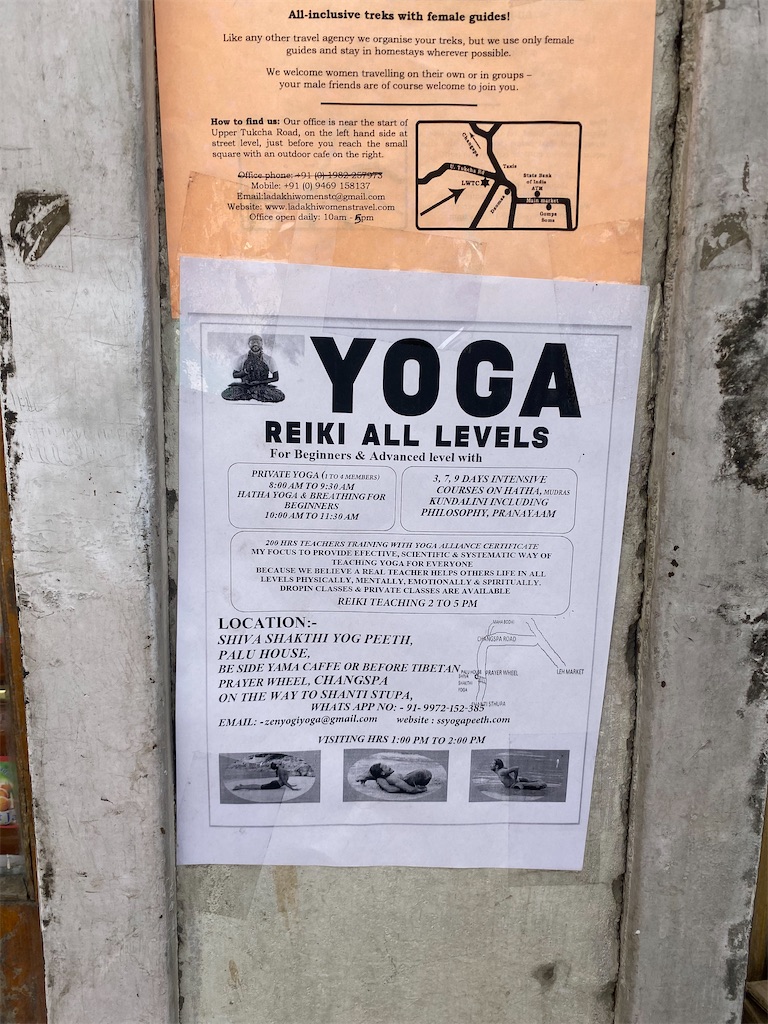 All-inclusive treks with female guides!
Like any other travel agency we organise your treks, but we use only female
guides and stay in homestays wherever possible.
We welcome women travelling on their own or in groups –
your male friends are of course welcome to join you.
How to find us: Our office is near the start of
Upper Tukcha Road, on the left hand side at
street level, just before you reach the small
square with an outdoor cafe on the right.
Office phone: +91 (0) 1982-257973
Mobile: +91 (0) 9469 158137
Email:ladakhiwomenstc@gmail.com
Website: www.ladakhiwomenstravel.com
Office open daily: 10am - 5pm
Changspa
U. Tukcha Rd
Taxis
LWTC
State Bank
of India
ATM
Main market
Gompa
Soma
YOGA
REIKI ALL LEVELS
For Beginners & Advanced level with
PRIVATE YOGA (1 TO 4 MEMBERS)
8:00 AM TO 9:30 AM
HATHA YOGA & BREATHING FOR
BEGINNERS
10:00 AM TO 11:30 AM
3, 7, 9 DAYS INTENSIVE
COURSES ON HATHA, MUDRAS
KUNDALINI INCLUDING
PHILOSOPHY, PRANAYAAM
200 HRS TEACHERS TRAINING WITH YOGA ALLIANCE CERTIFICATE
MY FOCUS TO PROVIDE EFECTIVE, SCIENTIFIC & SYSTEMATIC WAY OF
TEACHING YOGA FOR EVERYONE
BECAUSE WE BELIEVE A REAL TEACHER HELPS OTHERS LIFE IN ALL
LEVELS PHYSICALLY, MENTALLY, EMOTIONALLY & SPIRITUALLY.
DROPIN CLASSES & PRIVATE CLASSES ARE AVAILABLE
REIKI TEACHING 2 TO 5 PM
LOCATION:-
SHIVA SHAKTHI YOG PEETH,
PALU HOUSE,
BE SIDE YAMA CAFFE OR BEFORE TIBETAN
PRAYER WHEEL, CHANGSPA
ON THE WAY TO SHANTI STUPA,
WHATS APP NO: - 91- 9972-152-385
EMAIL: -zenyogiyoga@gmail.com website : ssyogapeeth.com
MAHA BODHI
CHANGSPA ROAD
PALU HOUSE
SHIVA
SHAKTHI
YOGA
PRAYER WHEEL
LEH MARKET
SHANTI STHUPA
VISITING HRS 1:00 PM TO 2:00 PM